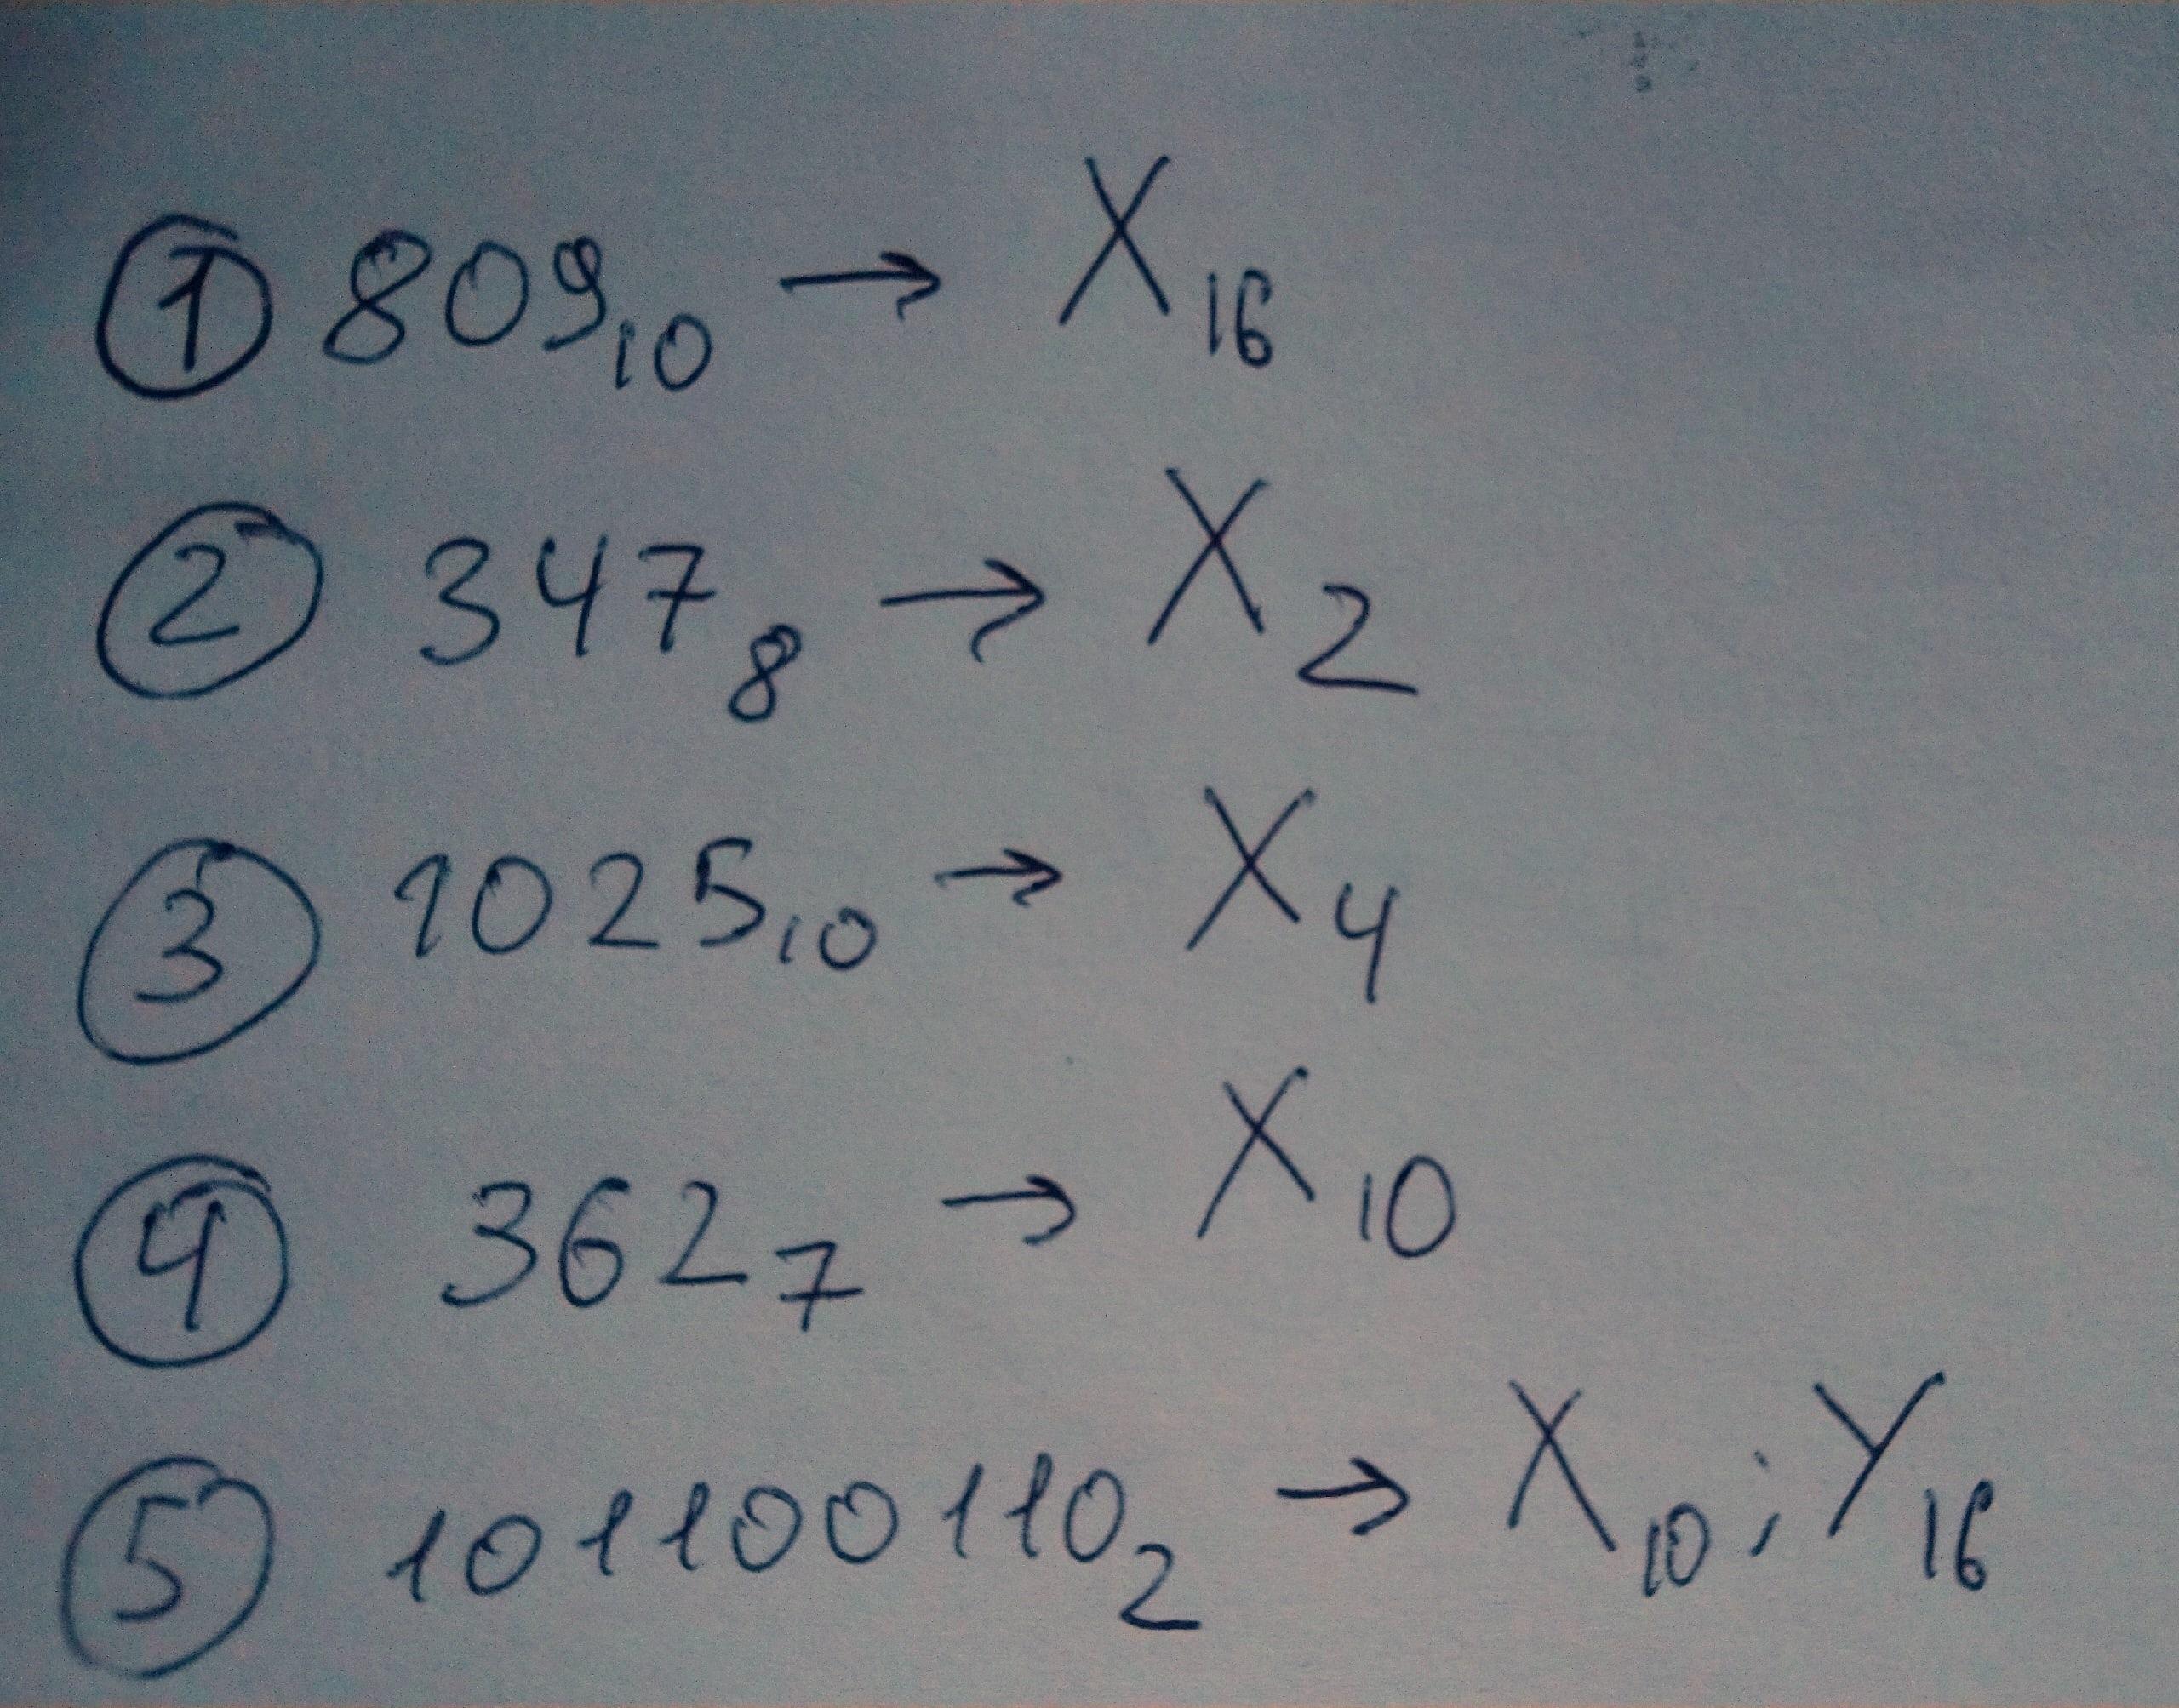 ① 809₁₀ → X₁₆
② 347₈ → X₂
③ 1025₁₀ → X₄
④ 362₇ → X₁₀
⑤ 101100110₂ → X₁₀; Y₁₆